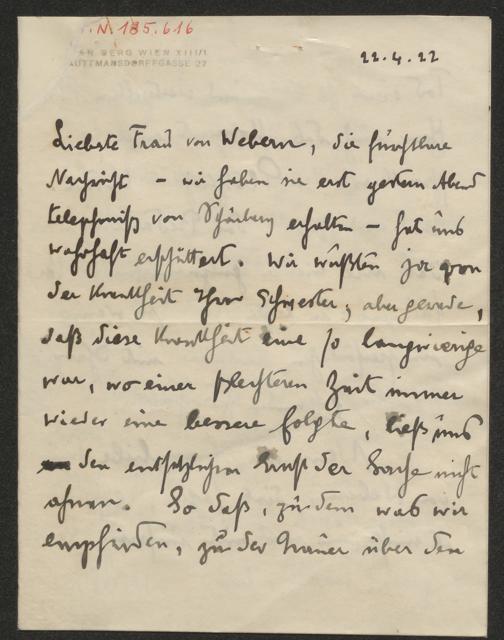 N. 185.616
AN BERG WIEN XIII/1
AUTTMANSDORFFGASSE 27
22.4.22
Liebste Frau von Webern, die furchtbare
Nachricht – wir haben sie erst gestern Abend
telephonisch von Schönberg erhalten – hat uns
wahrhaft erschüttert. Wir wußten ja von
der Krankheit Ihrer Schwester, aber gerade,
daß diese Krankheit eine so langwierige
war, wo einer schlechteren Zeit immer
wieder eine bessere folgte, ließ uns
den entsetzlichen Ernst der Sache nicht
ahnen. So daß, zu dem was wir
empfinden, zu der Trauer über den